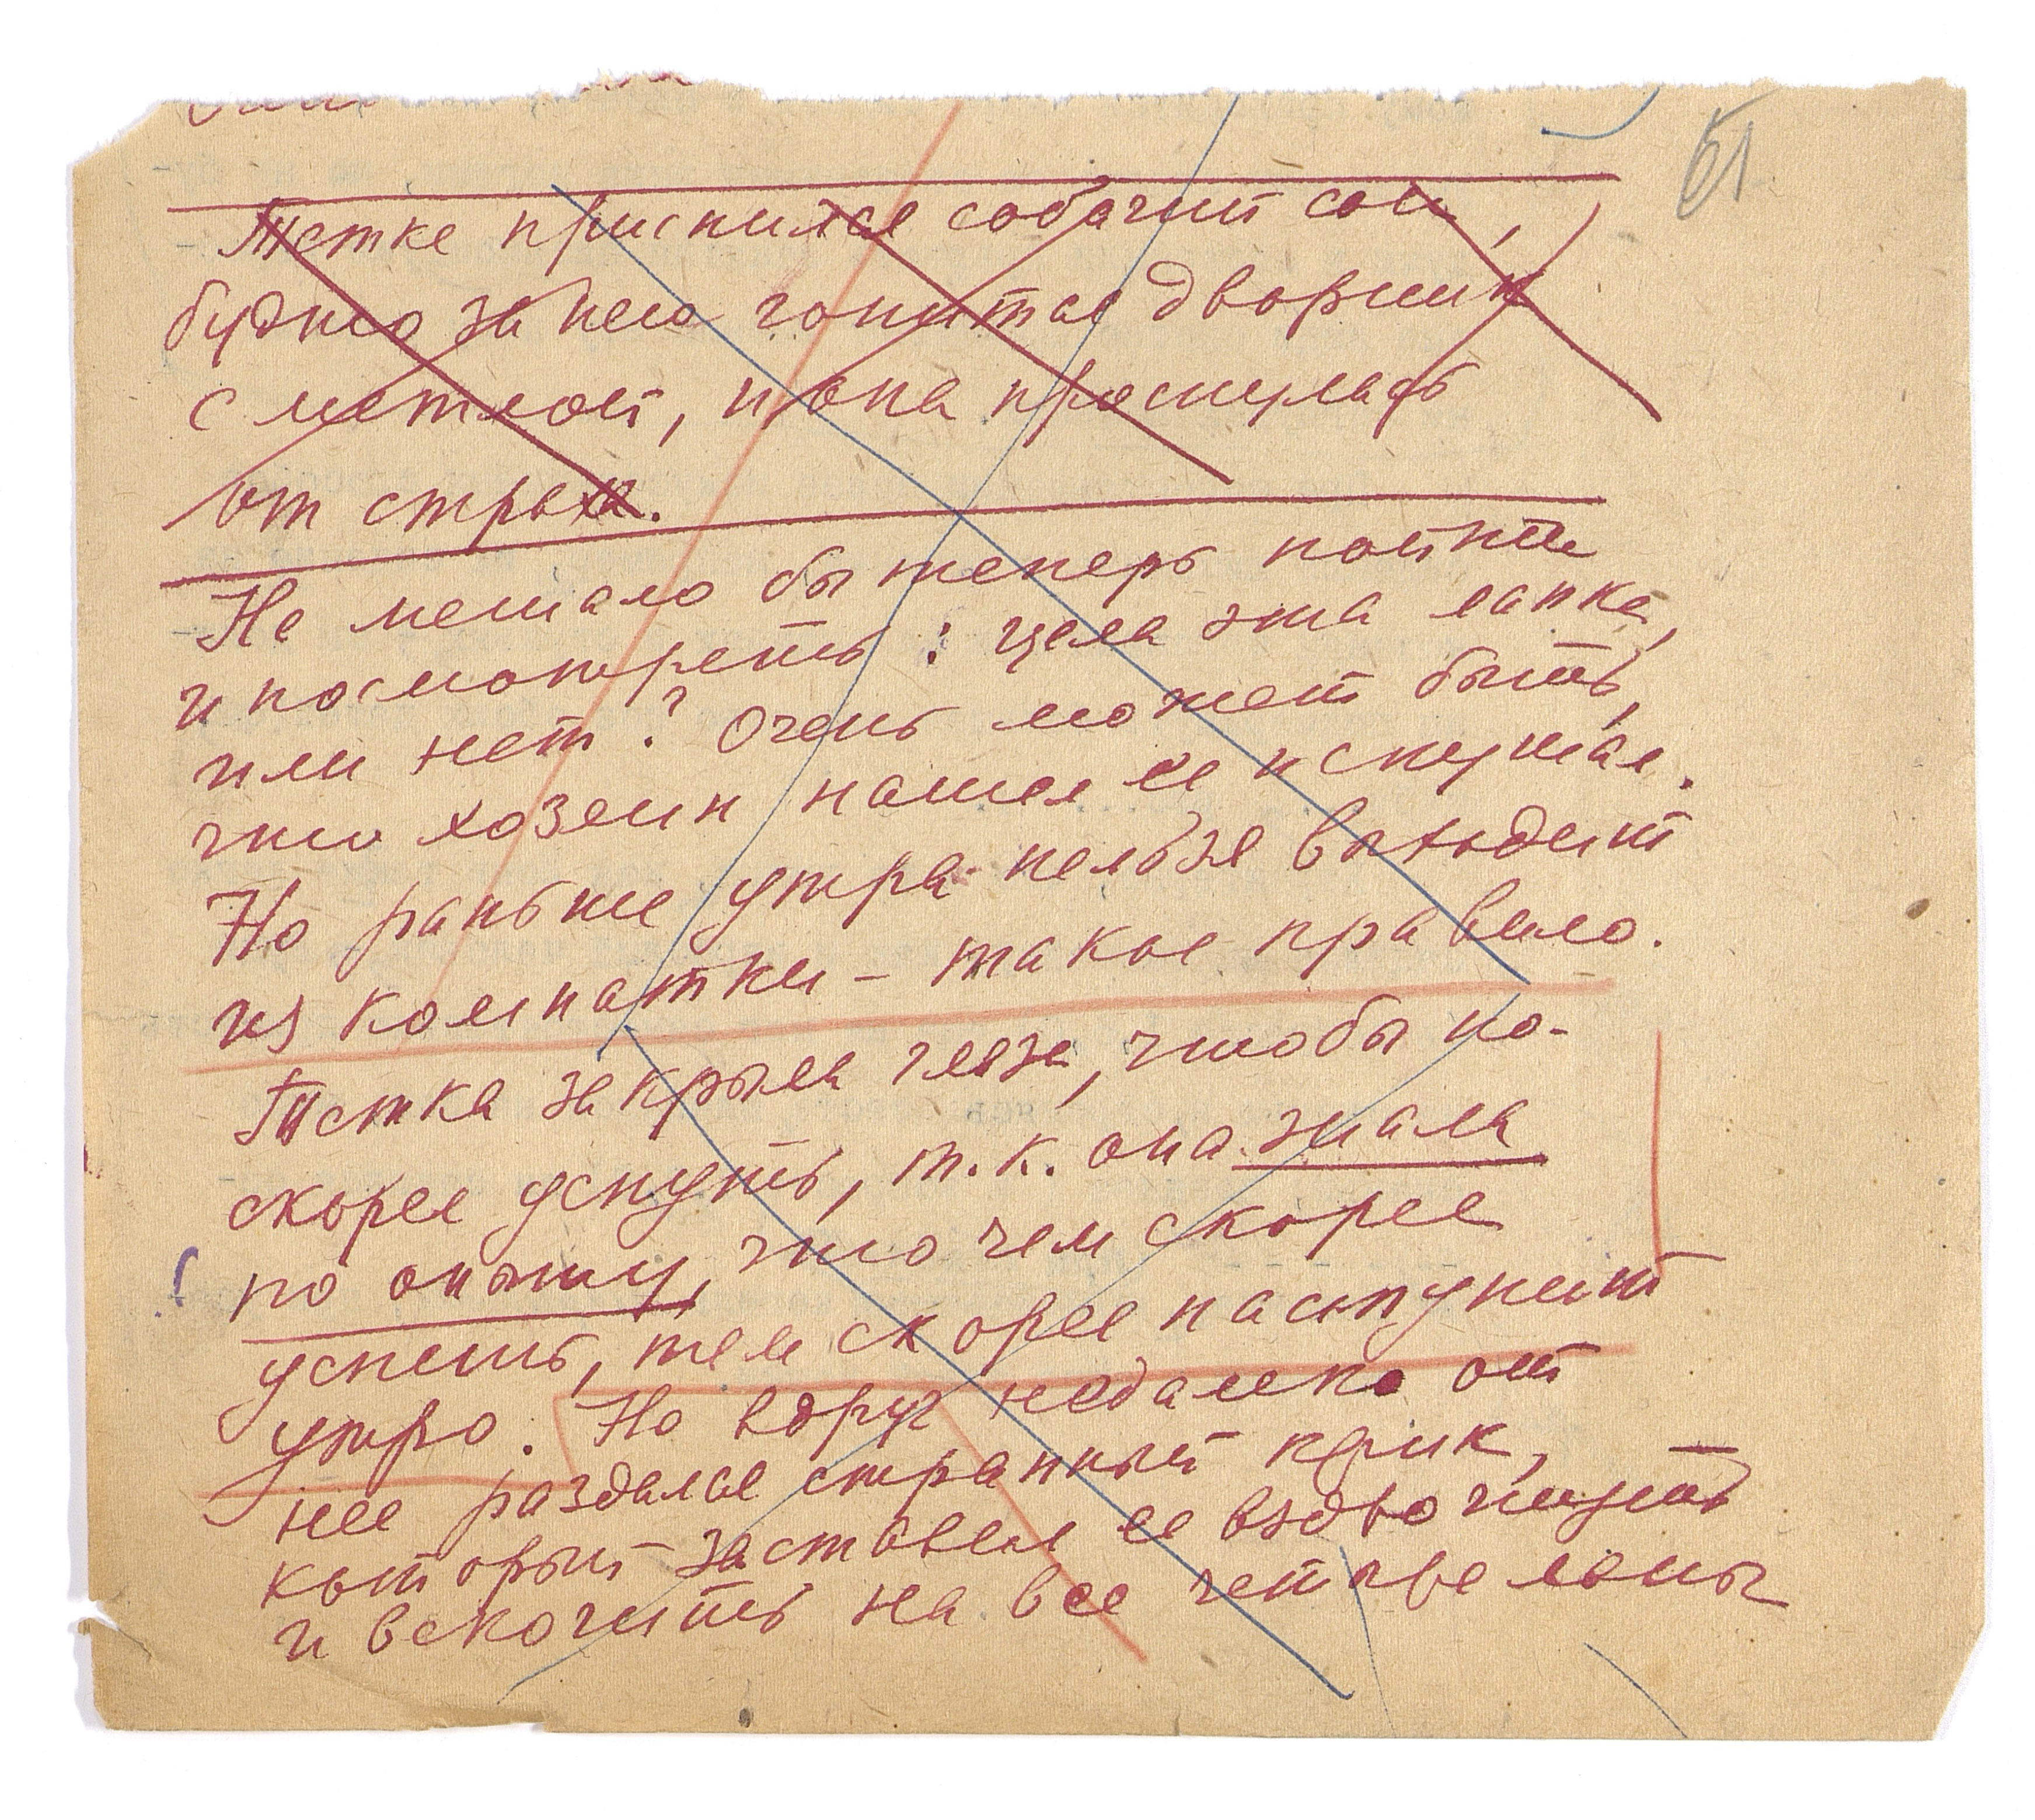 51
Тетке приснился собачий сон,
будто за нею гонится дворник
с метлой, и она проснулась
от страха.
Не мешало бы теперь пойти
и посмотреть: цела эта лапка,
или нет? Очень может быть,
что хозяин нашел ее и скушал.
Но раньше утра нельзя выходить
из комнатки – такое правило.
Тетка закрыла глаза, чтобы по-
скорее уснуть, т.к. она знала
по опыту, что чем скорее
уснешь, тем скорее наступит
утро. Но вдруг недалеко от
нее раздался странный крик,
который заставил ее вздрогнуть
и вскочить на все четыре лапы